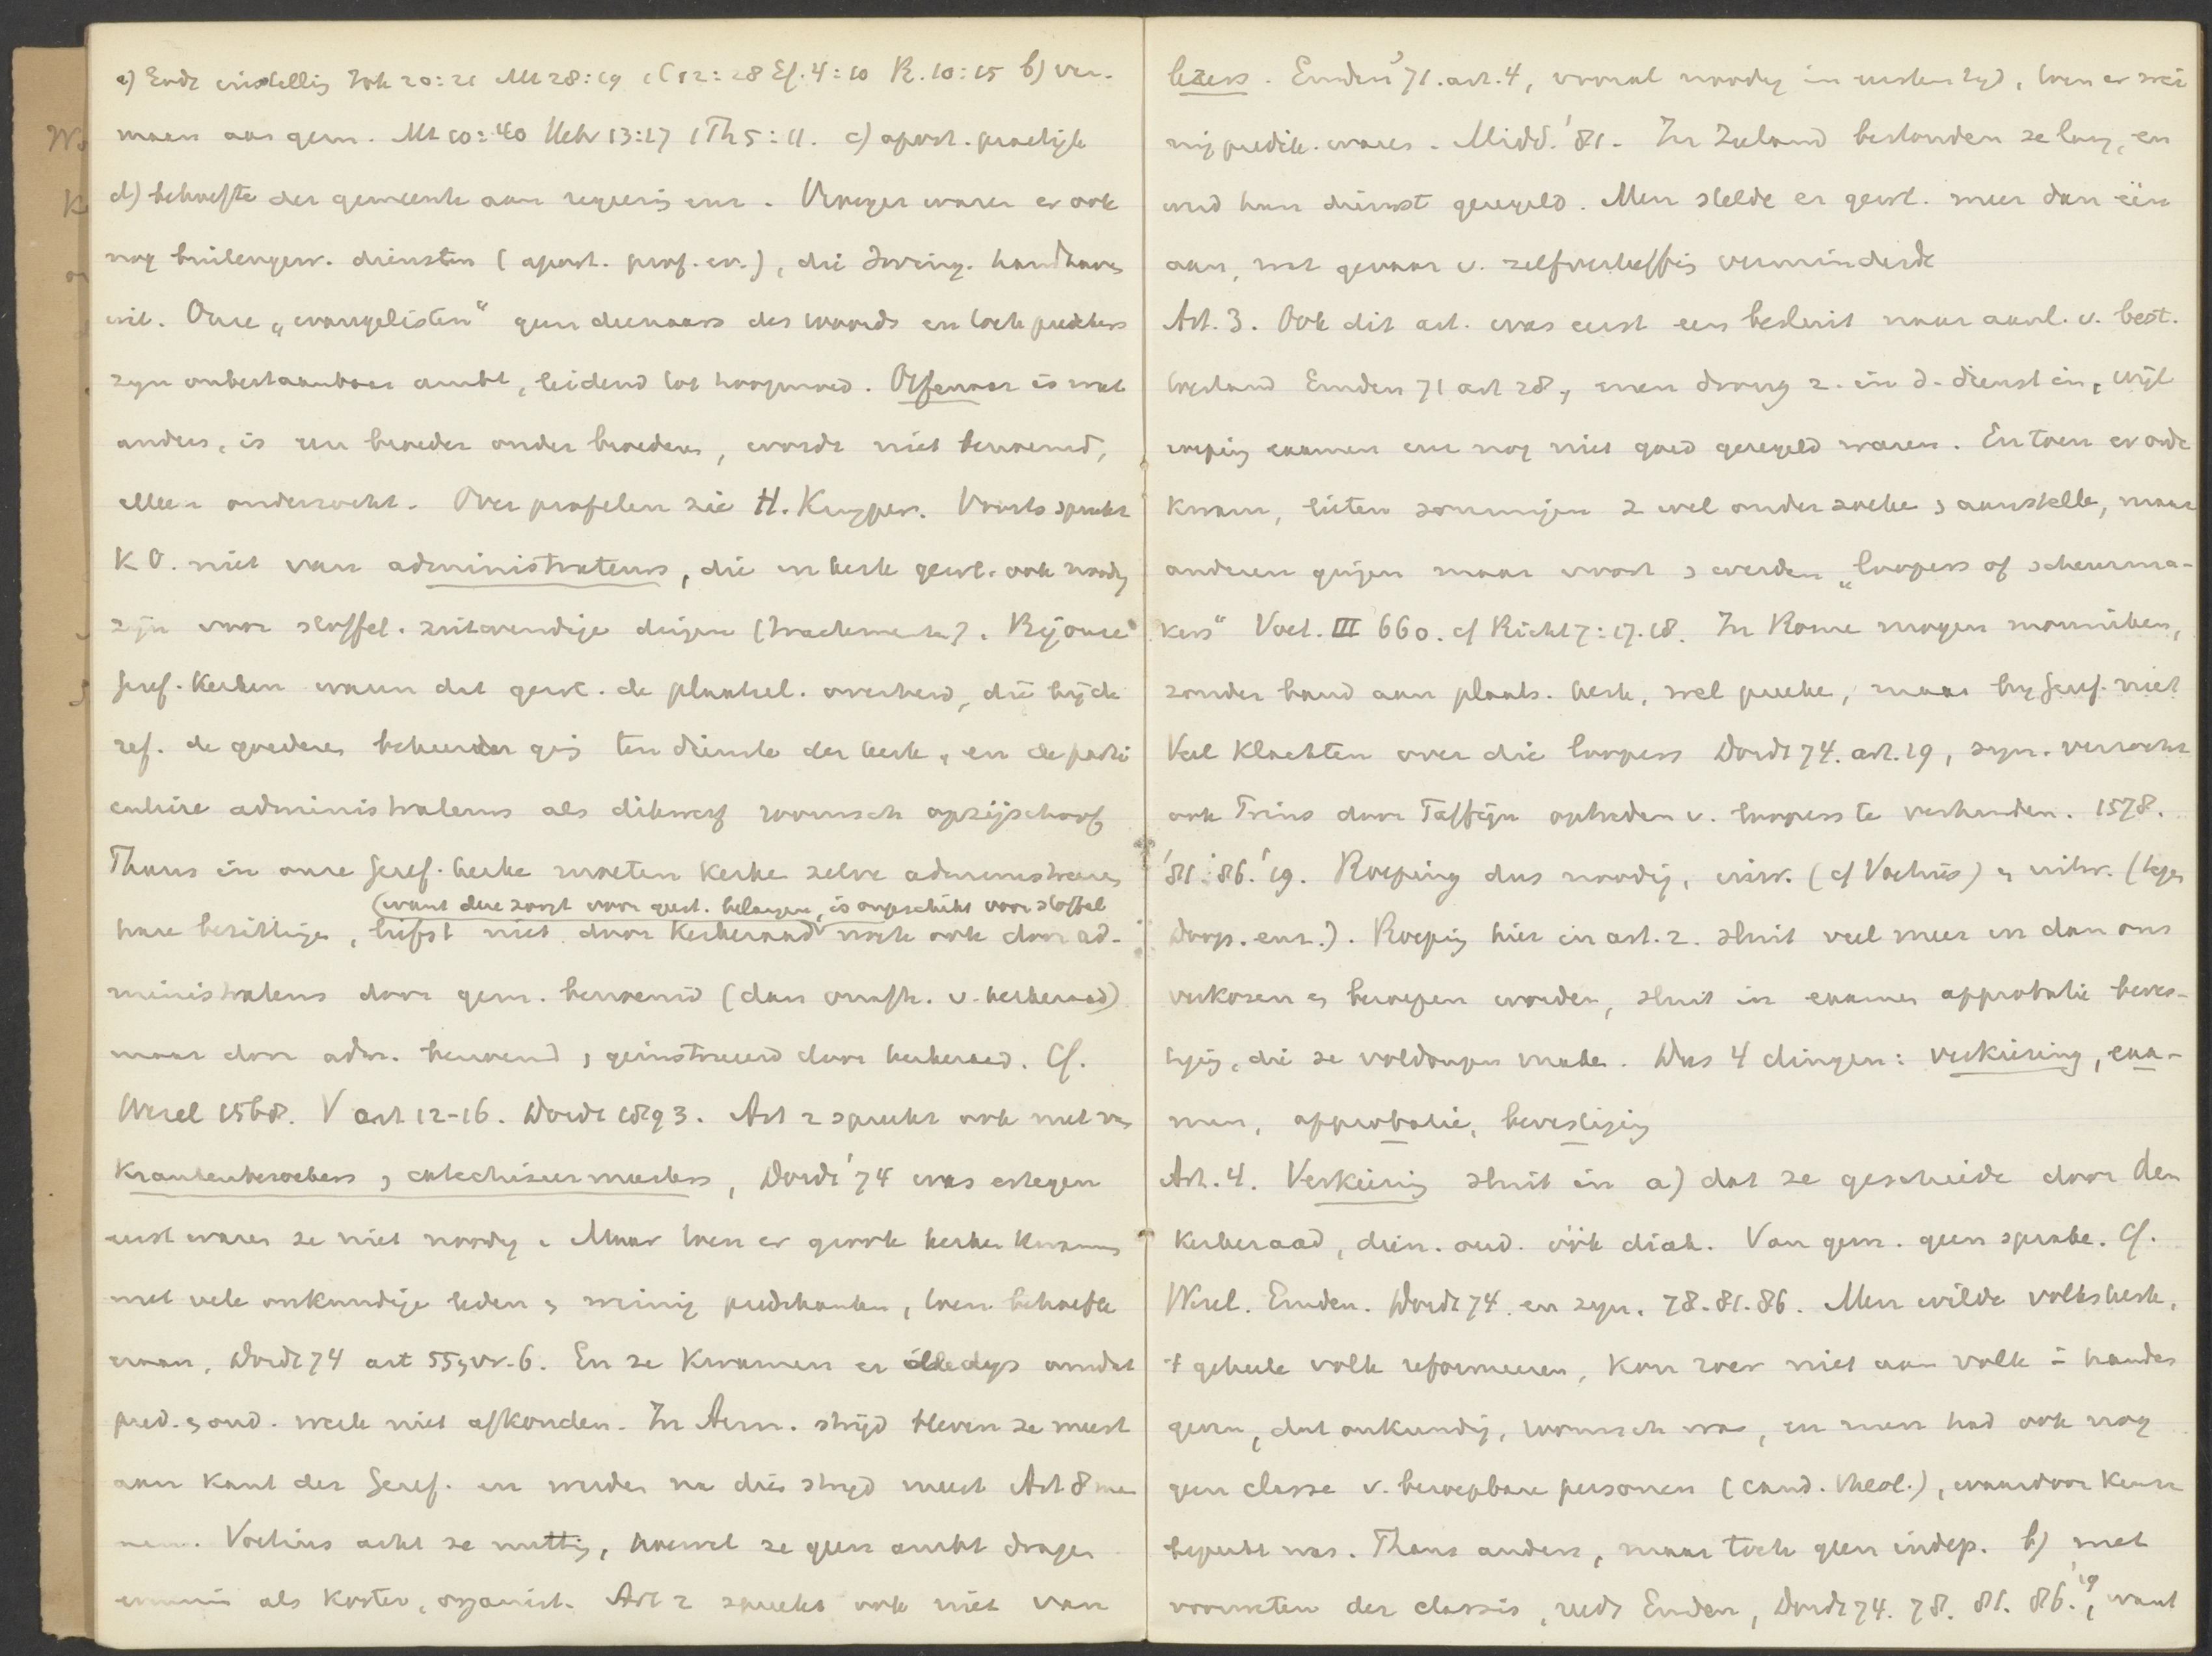 a) Gods instellig Joh 20:21 Mt 28:19 1C12:28 Ef. 4:10 R. 10:15 b) ver-
maan aan gem. Mt 10:40 Hebr 13:17 1Th 5:11. c) apost. practijk
d) behoefte der gemeente aan regeerig enz. Vroeger waren er ook
nog buitengew. diensten (apost. prof. ev.), die Irving. handhaven
wil. Onze „evangelisten" geen dienaars des woords en toch predikers
zijn onbestaanbaar ambt, leidend tot hoogmoed. Oefenaar is wat
anders, is een broeder onder broeders, wordt niet benoemd,
alleen onderzocht. Over profeten zie H. Kuyper. Voorts spreekt
K O. niet van administrateurs, die in kerk gewl. ook noodig
zijn voor stoffel. uitwendige dingen (tractementen). Bij onze
Geref. Kerken waren dat gewl. de plaatsel. overheid, die bij de
ref. de goederen beheerder gij ten dienste der kerk, en de parti
culiere administrateurs als dikwerf roomsch opzijschoof
Thans in onze Geref. kerke moeten kerke zelve administreeren
(want deze zorgt voor geest. belangen, is ongeschikt voor stoffel
hare bezittige, liefst niet door Kerkeraad noch ook door ad-
ministrateurs door gem. benoemd (dan onafh. v. kerkeraad)
maar door adm. benoemd, geinstrueerd door kerkeraad. Cf.
Wesel 1568. V art 12-16. Dordt 1893. Art 2 spreekt ook niet van
Krankenbezoekers, catechiseermeesters, Dordt '74 was ertegen
eerst waren ze niet noodig. Maar toen er groote kerken kwamen
met vele onkundige leden, weinig predikanten, toen behoefte
eraan, Dordt 74 art 55, vr. 6. En ze kwamen er alledags omdat
pred. , oud. werk niet afkonden. In Arm. strijd bleven ze meest
aan kant der Geref. en werden na die strijd meest Art 8 men
nen. Voetius acht ze nuttig, hoewel ze geen ambt dragen
evenmin als koster, organist. Art 2 spreekt ook niet van
lezers. Emden '71. art. 4, vooral noodig in eersten tijd, toen er wei
nig predik. waren. Midd. '81. In Zeeland bestonden ze lang, en
werd hun dienst geregeld. Men stelde er gewl. meer dan één
aan, wat gevaar v. zelfverheffig verminderde
Art. 3. Ook dit art. was eerst een besluit naar aanl. v. best.
toestand Emden 71 art 28, men drong z. in d. dienst in, wijl
roepig examen enz nog niet goed geregeld waren. En toen er orde
kwam, lieten sommigen z wel onderzoeke , aanstelle, maar
anderen gingen maar voort , werden „loopers of scheurma-
kers" Voet. III 660. cf Richt 7:17.18. In Rome mogen monniken,
zonder band aan plaats. kerk, wel preeke, maar bij Geref. niet
Veel klachten over die loopers Dordt 74. art. 19, syn. verzocht
ook Prins door Taffijn optreden v. loopers te verhinden. 1578.
'81. '86. '19. Roeping dus noodig, inw. (cf Voetius) , uitw. (tegen
Doop. enz.). Roepig hier in art. 2. sluit veel meer in dan ons
verkozen , beroepen worden, sluit in examen approbatie beves-
tigig, die ze voldongen maken. Dus 4 dingen: verkiezing, exa-
men, approbatie, bevestigig
Art. 4. Verkiezig sluit in a) dat ze geschiede door den
Kerkeraad, dien. oud. óók diak. Van gem. geen sprake. Cf.
Wesel. Emden. Dordt 74 en syn. 78. 81. 86. Men wilde volkskerk,
't geheele volk reformeeren, kon zoev niet aan volk = handen
geven, dat onkundig, roomsch was, en men had ook nog
geen classe v. beroepbare personen (cand. theol.), waardoor keuze
beperkt was. Thans anders, maar toch geen indep. b) met
voorweten der classis, reeds Emden, Dordt 74. 78. 81. 86. '19, want